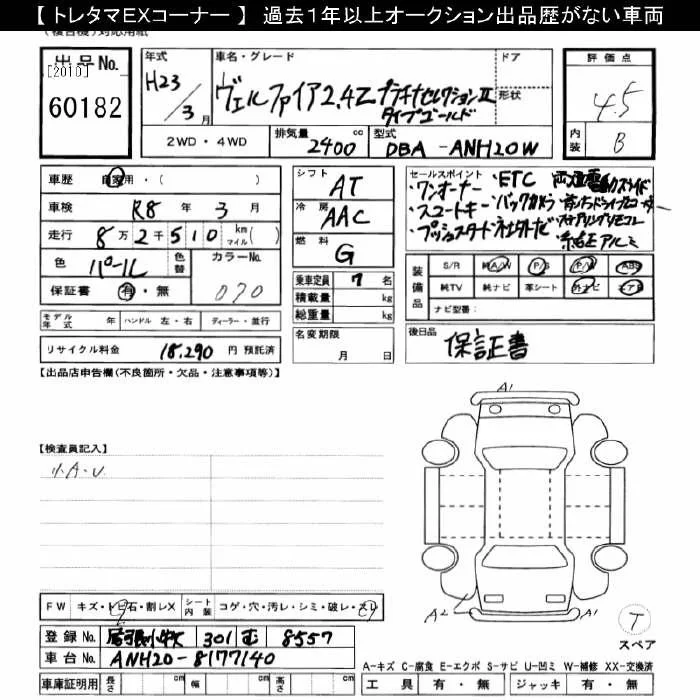 【 トレタマEXコーナー 】 過去1年以上オークション出品歴がない車両
出品No.
[2010]
60182
年式
H23/3月
車名・グレード
ヴェルファイア2.4Z プラチナセレクションⅡ
タイプゴールド
ドア
形状
評価点
4.5
内装
B
2WD・4WD
排気量 2400 cc
型式 DBA-ANH20W
車歴 自家用・( )
車検 R8年 3月
走行 8万2千510 km マイル( )
色 パール 色替
カラーNo. 070
保証書 有・無
シフト AT
冷房 AAC
燃料 G
乗車定員 7名
積載量 kg
総重量 kg
セールスポイント
・ワンオーナー ・ETC
・スマートキー ・バックカメラ
・プッシュスタート
装備品
S/R 純A/W P/S P/W ABS
純TV 純ナビ 革シート 外ナビ エアB
ナビ型番:
モデル年式 年 ハンドル 左・右 ディーラー・並行
名変期限
月 日
後日品
保証書
リサイクル料金 18,290 円 預託済
【出品店申告欄(不良箇所・欠品・注意事項等)】
【検査員記入】
小A・U
A1
A2
A1
T
スペア
FW キズ・トビ石・割レX
シート内装 コゲ・穴・汚レ・シミ・破レ・スレ
登録No. 301 む 8557
車台No. ANH20-8177140
車庫証明用 長さ cm 幅 cm 高さ cm
A-キズ C-腐食 E-エクボ S-サビ U-凹ミ W-補修 XX-交換済
工具 有・無 ジャッキ 有・無